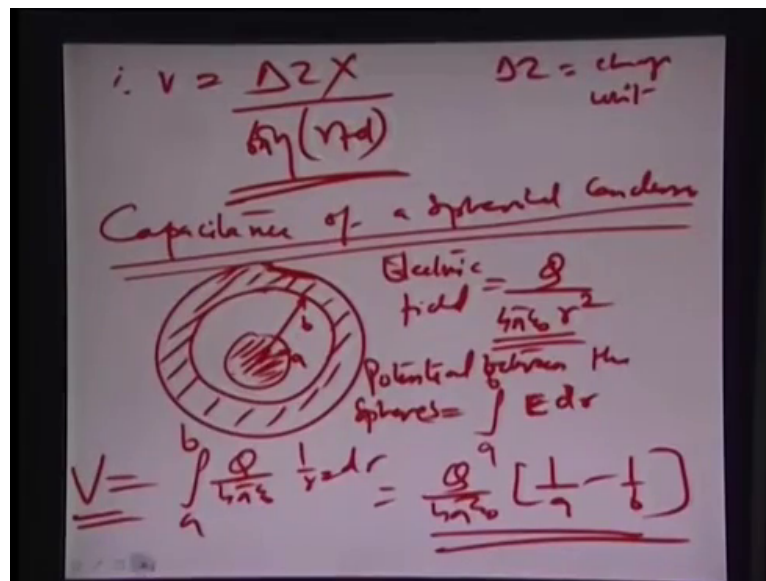 ∴ v = ΔZX / 6πη(r+d)
ΔZ = charge unit
Capacitance of a Spherical Condenser
Electric field = Q / 4πε₀ r²
b
a
Potential between the spheres = ∫ₐᵇ E dr
V = ∫ₐᵇ Q/4πε₀ 1/r² dr = Q/4πε₀ [1/a − 1/b]